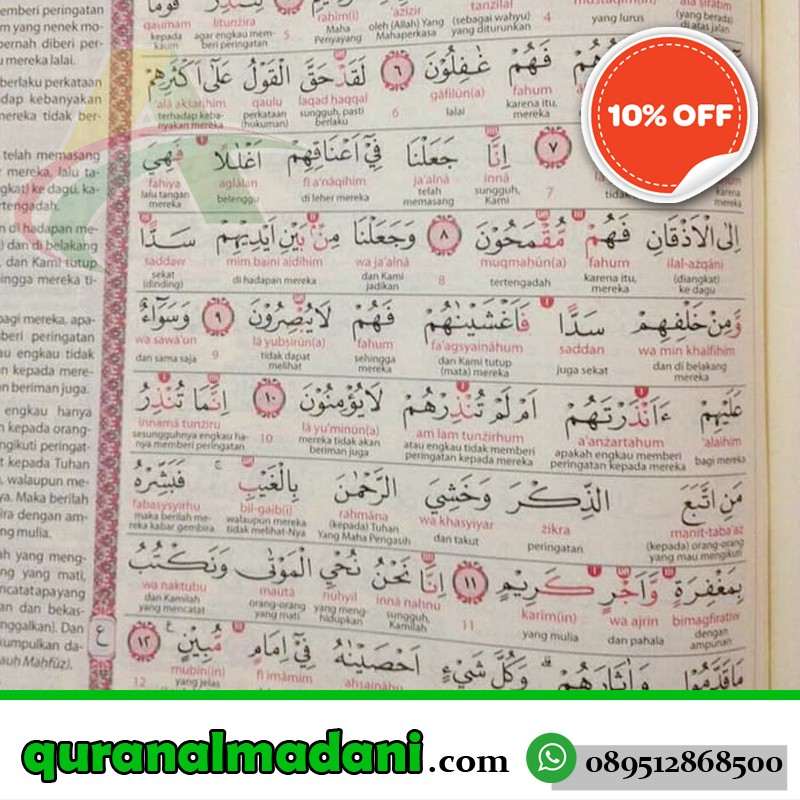 10% OFF
emberi peringatan
ernah diberi per-
u mereka lalai.
berlaku perkataan
dap kebanyakan
mereka tidak ber-
telah memasang
r mereka, lalu ta-
gkat) ke dagu, ka-
tertengadah.
n di hadapan me-
) dan di belakang
, dan Kami tutup
hingga mereka ti-
bagi mereka, apa-
beri peringatan
au engkau tidak
n kepada mere-
n beriman juga.
engkau hanya
n kepada orang-
ngikuti peringat-
t kepada Tuhan
walaupun me-
ya. Maka berilah
ira dengan am-
ng mulia.
ah yang meng-
ng yang mati,
ncatat apa yang
n dan bekas-
nggalkan). Dan
kumpulkan da-
auh Mahfūẓ).
qaumam litunżira rahīm(i) 'azīzir tanzīlal
kepada kaum agar engkau memberi peringatan 5 Maha Penyayang oleh (Allah) Yang Mahaperkasa (sebagai wahyu) yang diturunkan 4 yang lurus (yang berada) di atas jalan
فَهُمْ غٰفِلُوْنَ ٦ لَقَدْ حَقَّ الْقَوْلُ عَلٰٓى اَكْثَرِهِمْ
fahum gāfilūn(a) laqad ḥaqqal qaulu 'alā akṡarihim
karena itu, mereka lalai 6 sungguh, pasti berlaku perkataan (hukuman) terhadap kebanyakan mereka
٧ اِنَّا جَعَلْنَا فِيْٓ اَعْنَاقِهِمْ اَغْلٰلًا فَهِيَ
innā ja'alnā fī a'nāqihim aglālan fahiya
7 sungguh, Kami telah memasang di leher mereka belenggu lalu tangan mereka
اِلَى الْاَذْقَانِ فَهُمْ مُّقْمَحُوْنَ ٨ وَجَعَلْنَا مِنْۢ بَيْنِ اَيْدِيْهِمْ سَدًّا
ilal-ażqāni fahum muqmaḥūn(a) wa ja'alnā mim baini aidīhim saddaw
(diangkat) ke dagu karena itu, mereka tertengadah 8 dan Kami jadikan di hadapan mereka sekat (dinding)
وَّمِنْ خَلْفِهِمْ سَدًّا فَاَغْشَيْنٰهُمْ فَهُمْ لَا يُبْصِرُوْنَ ٩ وَسَوَاۤءٌ
wa min khalfihim saddan fa'agsyaināhum fahum lā yubṣirūn(a) wa sawā'un
dan di belakang mereka juga sekat dan Kami tutup (mata) mereka sehingga mereka tidak dapat melihat 9 dan sama saja
عَلَيْهِمْ ءَاَنْذَرْتَهُمْ اَمْ لَمْ تُنْذِرْهُمْ لَا يُؤْمِنُوْنَ ١٠ اِنَّمَا تُنْذِرُ
'alaihim a'anżartahum am lam tunżirhum lā yu'minūn(a) innamā tunżiru
bagi mereka apakah engkau memberi peringatan kepada mereka atau engkau tidak memberi peringatan kepada mereka mereka tidak akan beriman juga 10 sesungguhnya engkau hanya memberi peringatan
مَنِ اتَّبَعَ الذِّكْرَ وَخَشِيَ الرَّحْمٰنَ بِالْغَيْبِ فَبَشِّرْهُ
manit-taba'aż żikra wa khasyiyar raḥmāna bil-gaib(i) fabasysyirhu
(kepada) orang-orang yang mau mengikuti peringatan dan takut (kepada) Tuhan Yang Maha Pengasih walaupun mereka tidak melihat-Nya maka berilah mereka kabar gembira
بِمَغْفِرَةٍ وَّاَجْرٍ كَرِيْمٍ ١١ اِنَّا نَحْنُ نُحْيِ الْمَوْتٰى وَنَكْتُبُ
bimagfiratiw wa ajrin karīm(in) innā naḥnu nuḥyil mautā wa naktubu
dengan ampunan dan pahala yang mulia 11 sungguh, Kamilah yang menghidupkan orang-orang yang mati dan Kamilah yang mencatat
مَا قَدَّمُوْا وَاٰثَارَهُمْ وَكُلَّ شَيْءٍ اَحْصَيْنٰهُ فِيْٓ اِمَامٍ مُّبِيْنٍ ١٢
aḥṣaināhu fī imāmim mubīn(in)
yang jelas 12
quranalmadani.com 089512868500